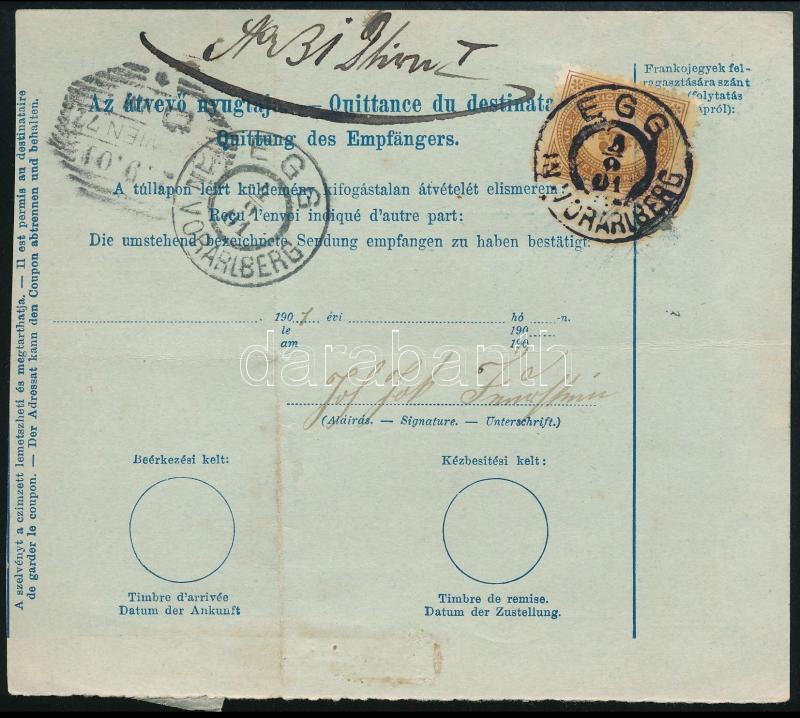 Az átvevő nyugtája. — Quittance du destinata
Quittung des Empfängers.
A túllapon leirt küldemény kifogástalan átvételét elismerem
Reçu l'envoi indiqué d'autre part:
Die umstehend bezeichnete Sendung empfangen zu haben bestätigt:
190 1 évi hó -n.
le 190
am 190
darabanth
(Aláirás. — Signature. — Unterschrift.)
Beérkezési kelt:
Kézbesitési kelt:
Timbre d'arrivée
Datum der Ankunft
Timbre de remise.
Datum der Zustellung.
Frankojegyek fel-
ragasztására szánt
(folytatás
EGG
4
9
01
IN VORARLBERG
EGG
4
9
01
IN VORARLBERG
WIEN 7
A szelvényt a czimzett lemetszheti és megtarthatja. — Il est permis au destinataire
de garder le coupon. — Der Adressat kann den Coupon abtrennen und behalten.